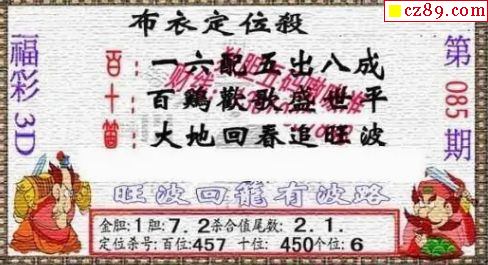 cz89.com
布衣定位殺
福彩3D
第085期
百：一六配五出八成
十：百鷄歡歌盛世平
大地回春追旺波
旺波回龍有波路
金胆:1胆:7.2杀合值尾数: 2.1.
定位杀号:百位:457 十位: 450个位:6